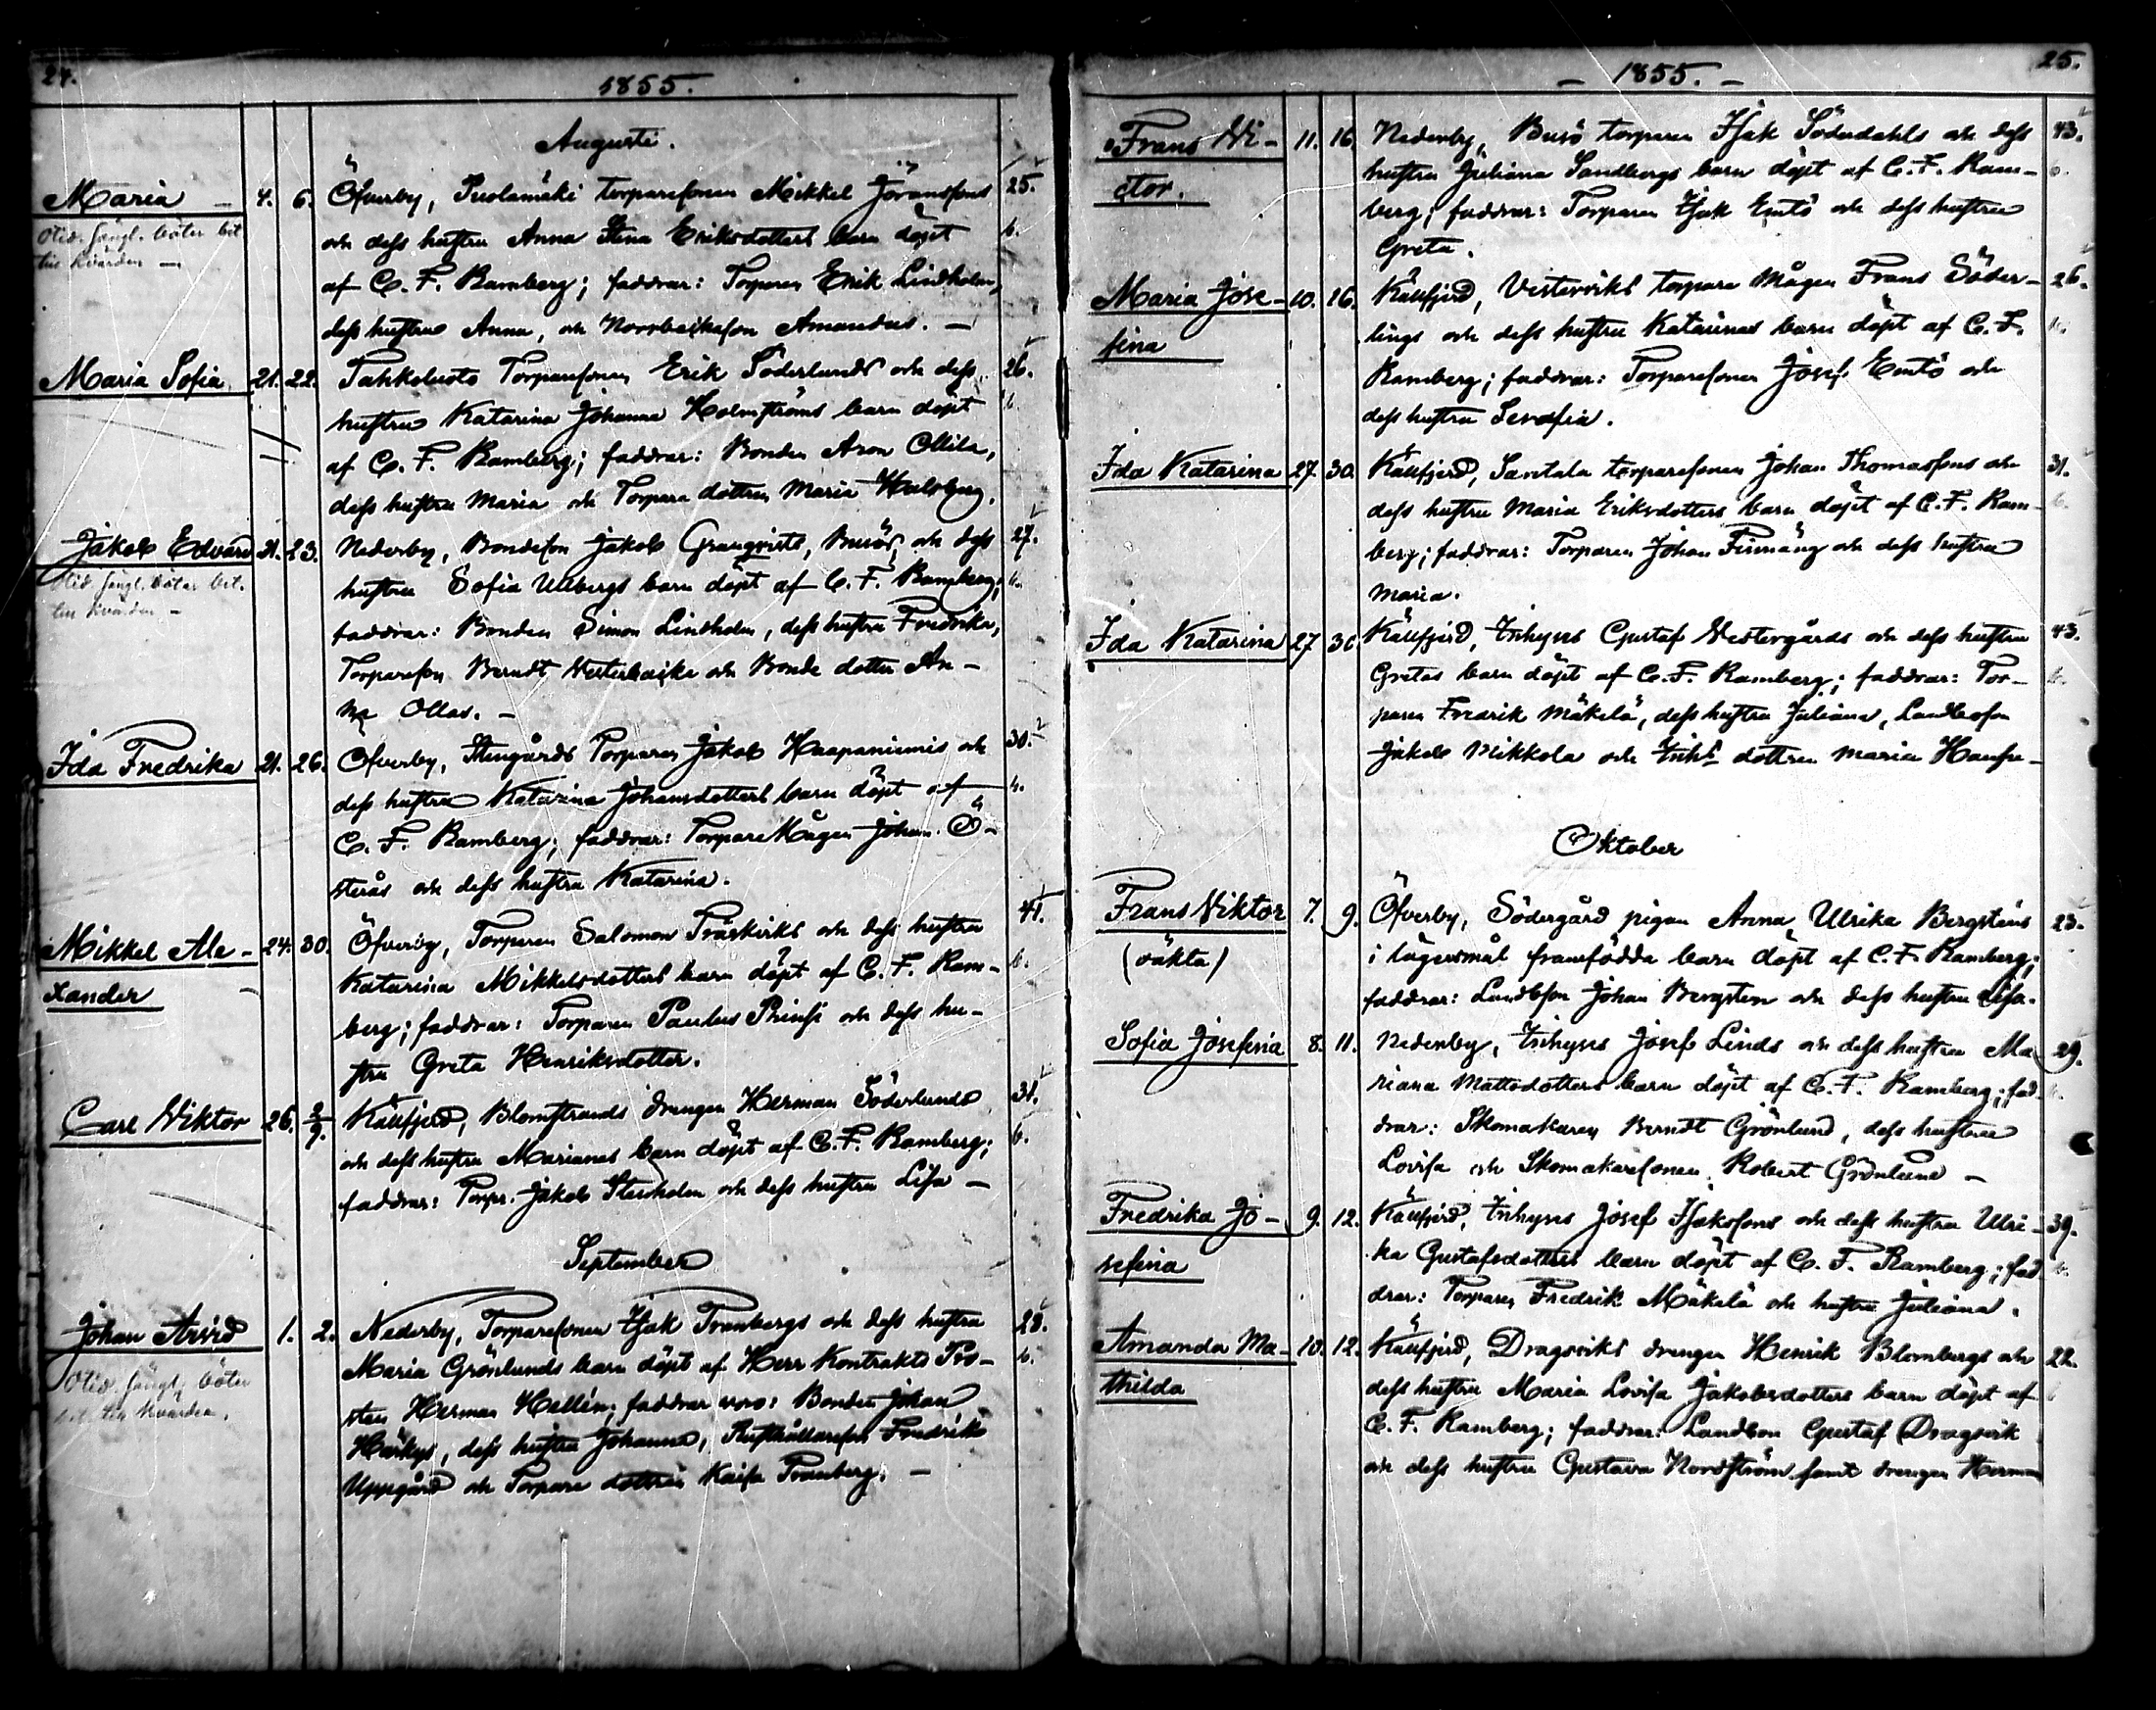 24.
1855.
Augusti.
Maria — 4. 6. Öfverby, Suolamäki torparesonen Mikkel Göranssons 25.
Otid. sängl. böter bet. och dess hustru Anna Stena Eriksdotters barn döpt 6.
till kyrkan — af C. F. Ramberg; faddrar: Torparen Erik Lindholm,
dess hustru Anna, och Norrbackason Amandus. —
Maria Sofia 21. 22. Tahkoluoto Torparesonen Erik Söderlunds och dess 26.
hustrus Katarina Johanna Holmströms barn döpt
af C. F. Ramberg; faddrar: Bonden Aron Ollila,
dess hustru Maria och Torpare dottren Maria
Jakob Edvard 21. 23. Nederby, Bondeson Jakob Granqvists, Busös, och dess 27.
Otid. sängl. böter bet. hustru Sofia Ullbergs barn döpt af C. F. Ramberg;
faddrar: Bonden Simon Lindholm, dess hustru Fredrika,
Torpareson Berndt Vesterbacka och Bonde dotter An-
na Ollas. —
Ida Fredrika 21. 26. Öfverby, Stengårds Torparen Jakob Haapaniemis och 30.
dess hustru Katarina Johansdotters barn döpt af
C. F. Ramberg; faddrar: TorpareMågen Johan Ö-
sterås och dess hustru Katarina.
Mikkel Ale- 24. 30. Öfverby, Torparen Salomon Träskviks och dess hustru 41.
xander — Katarina Mikkelsdotters barn döpt af C. F. Ram- 6.
berg; faddrar: Torparen Paulus och dess hu-
stru Greta Henriksdotter.
Carl Viktor 26. 2/9. Källfjerd, Blomstrands drengen Herman Söderlunds 31.
och dess hustru Marianas barn döpt af C. F. Ramberg; 6.
faddrar: Torpr. Jakob Stenholm och dess hustru Lisa —
September
Johan Arvid 1. 2. Nederby, Torparesonen Isak Tranbergs och dess hustru 28.
Otid. sängl. böter Maria Grönlunds barn döpt af Herr Kontrakts Pro- 6.
bet. till kyrkan. sten Herman Hellén; faddrar voro: Bonden Johan
Härkys, dess hustru Johanna, Rusthållareson Fredrik
Uppgård och Torpare dottren Kaisa Tranberg. —
25.
— 1855. —
Frans Vi- 11. 16. Nederby, Busö torparen Isak Söderdahls och dess 43.
ctor. hustru Juliana Sandbergs barn döpt af C. F. Ram- 6.
berg; faddrar: Torparen Isak Emtö och dess hustru
Greta.
Maria Jose- 10. 16. Källfjerd, Vesterviks torpare Mågen Frans Söder- 26.
fina lings och dess hustru Katarinas barn döpt af C. F.
Ramberg; faddrar: Torparesonen Josef Emtö och
dess hustru Serafia.
Ida Katarina 27. 30. Källfjerd, Santala torparesonen Johan Thomassons och 31.
dess hustru Maria Eriksdotters barn döpt af C. F. Ram-
berg; faddrar: Torparen Johan och dess hustru
Maria.
Ida Katarina 27. 30. Källfjerd, Inhyses Gustaf Vestergårds och dess hustru 43.
Gretas barn döpt af C. F. Ramberg; faddrar: Tor-
paren Fredrik Mäkelä, dess hustru Juliana, Landboson
Jakob Nikkola och Inhs dottren Maria
Oktober
Frans Viktor 7. 9. Öfverby, Södergård pigan Anna Ulrika Bergstens 23.
(oäkta) i lägersmål framfödda barn döpt af C. F. Ramberg;
faddrar: Landbson Johan Bergsten och dess hustru Lisa.
Sofia Josefina 8. 11. Nederby, Inhyses Josef Linds och dess hustru Ma- 29.
riana Mattsdotters barn döpt af C. F. Ramberg; fad-
drar: Skomakaren Berndt Grönlund, dess hustru
Lovisa och Skomakaresonen Robert Grönlund —
Fredrika Jo- 9. 12. Källfjerd, Inhyses Josef Isakssons och dess hustru Ulri- 39.
sefina ka Gustafsdotters barn döpt af C. F. Ramberg; fad-
drar: Torparen Fredrik Mäkelä och hustru Juliana.
Amanda Ma- 10. 12. Källfjerd, Dragsviks drengen Henrik Blombergs och 22.
thilda dess hustru Maria Lovisa Jakobsdotters barn döpt af
C. F. Ramberg; faddrar: Landbon Gustaf Dragsvik
och dess hustru Gustava Nordström samt drengen Herman